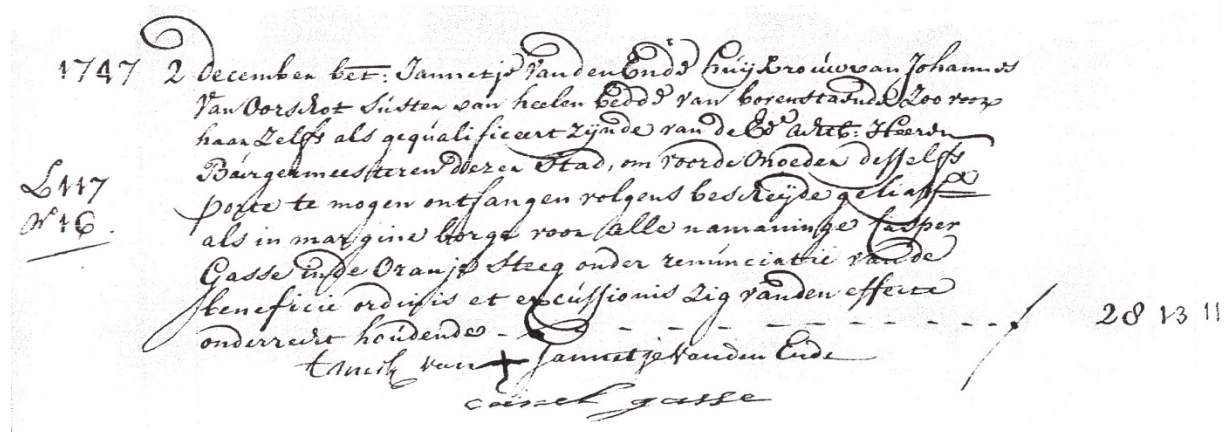 1747 2 december bet: Jannetje van den Ende huijsvrouw van Johannes
van Oorschot suster van heelen bedde van bovenstaende zoo voor
haar zelfs als gequalificeert zijnde van de Ed.e Achtb: Heeren
Burgermeesteren dezer Stad, om voor de moeder desselfs
L 117
porte te mogen ontfangen volgens bescheijde geliasst
N 16.
als in margine borge voor alle namaninge Casper
Gasse in de Oranje Steeg onder renunciatie van de
beneficie ordinis et excussionis zig van den effecte
onderrecht houdende - - - - - - - - - - ƒ 28 13 11
t merk van + Jannetje van den Ende
gasse